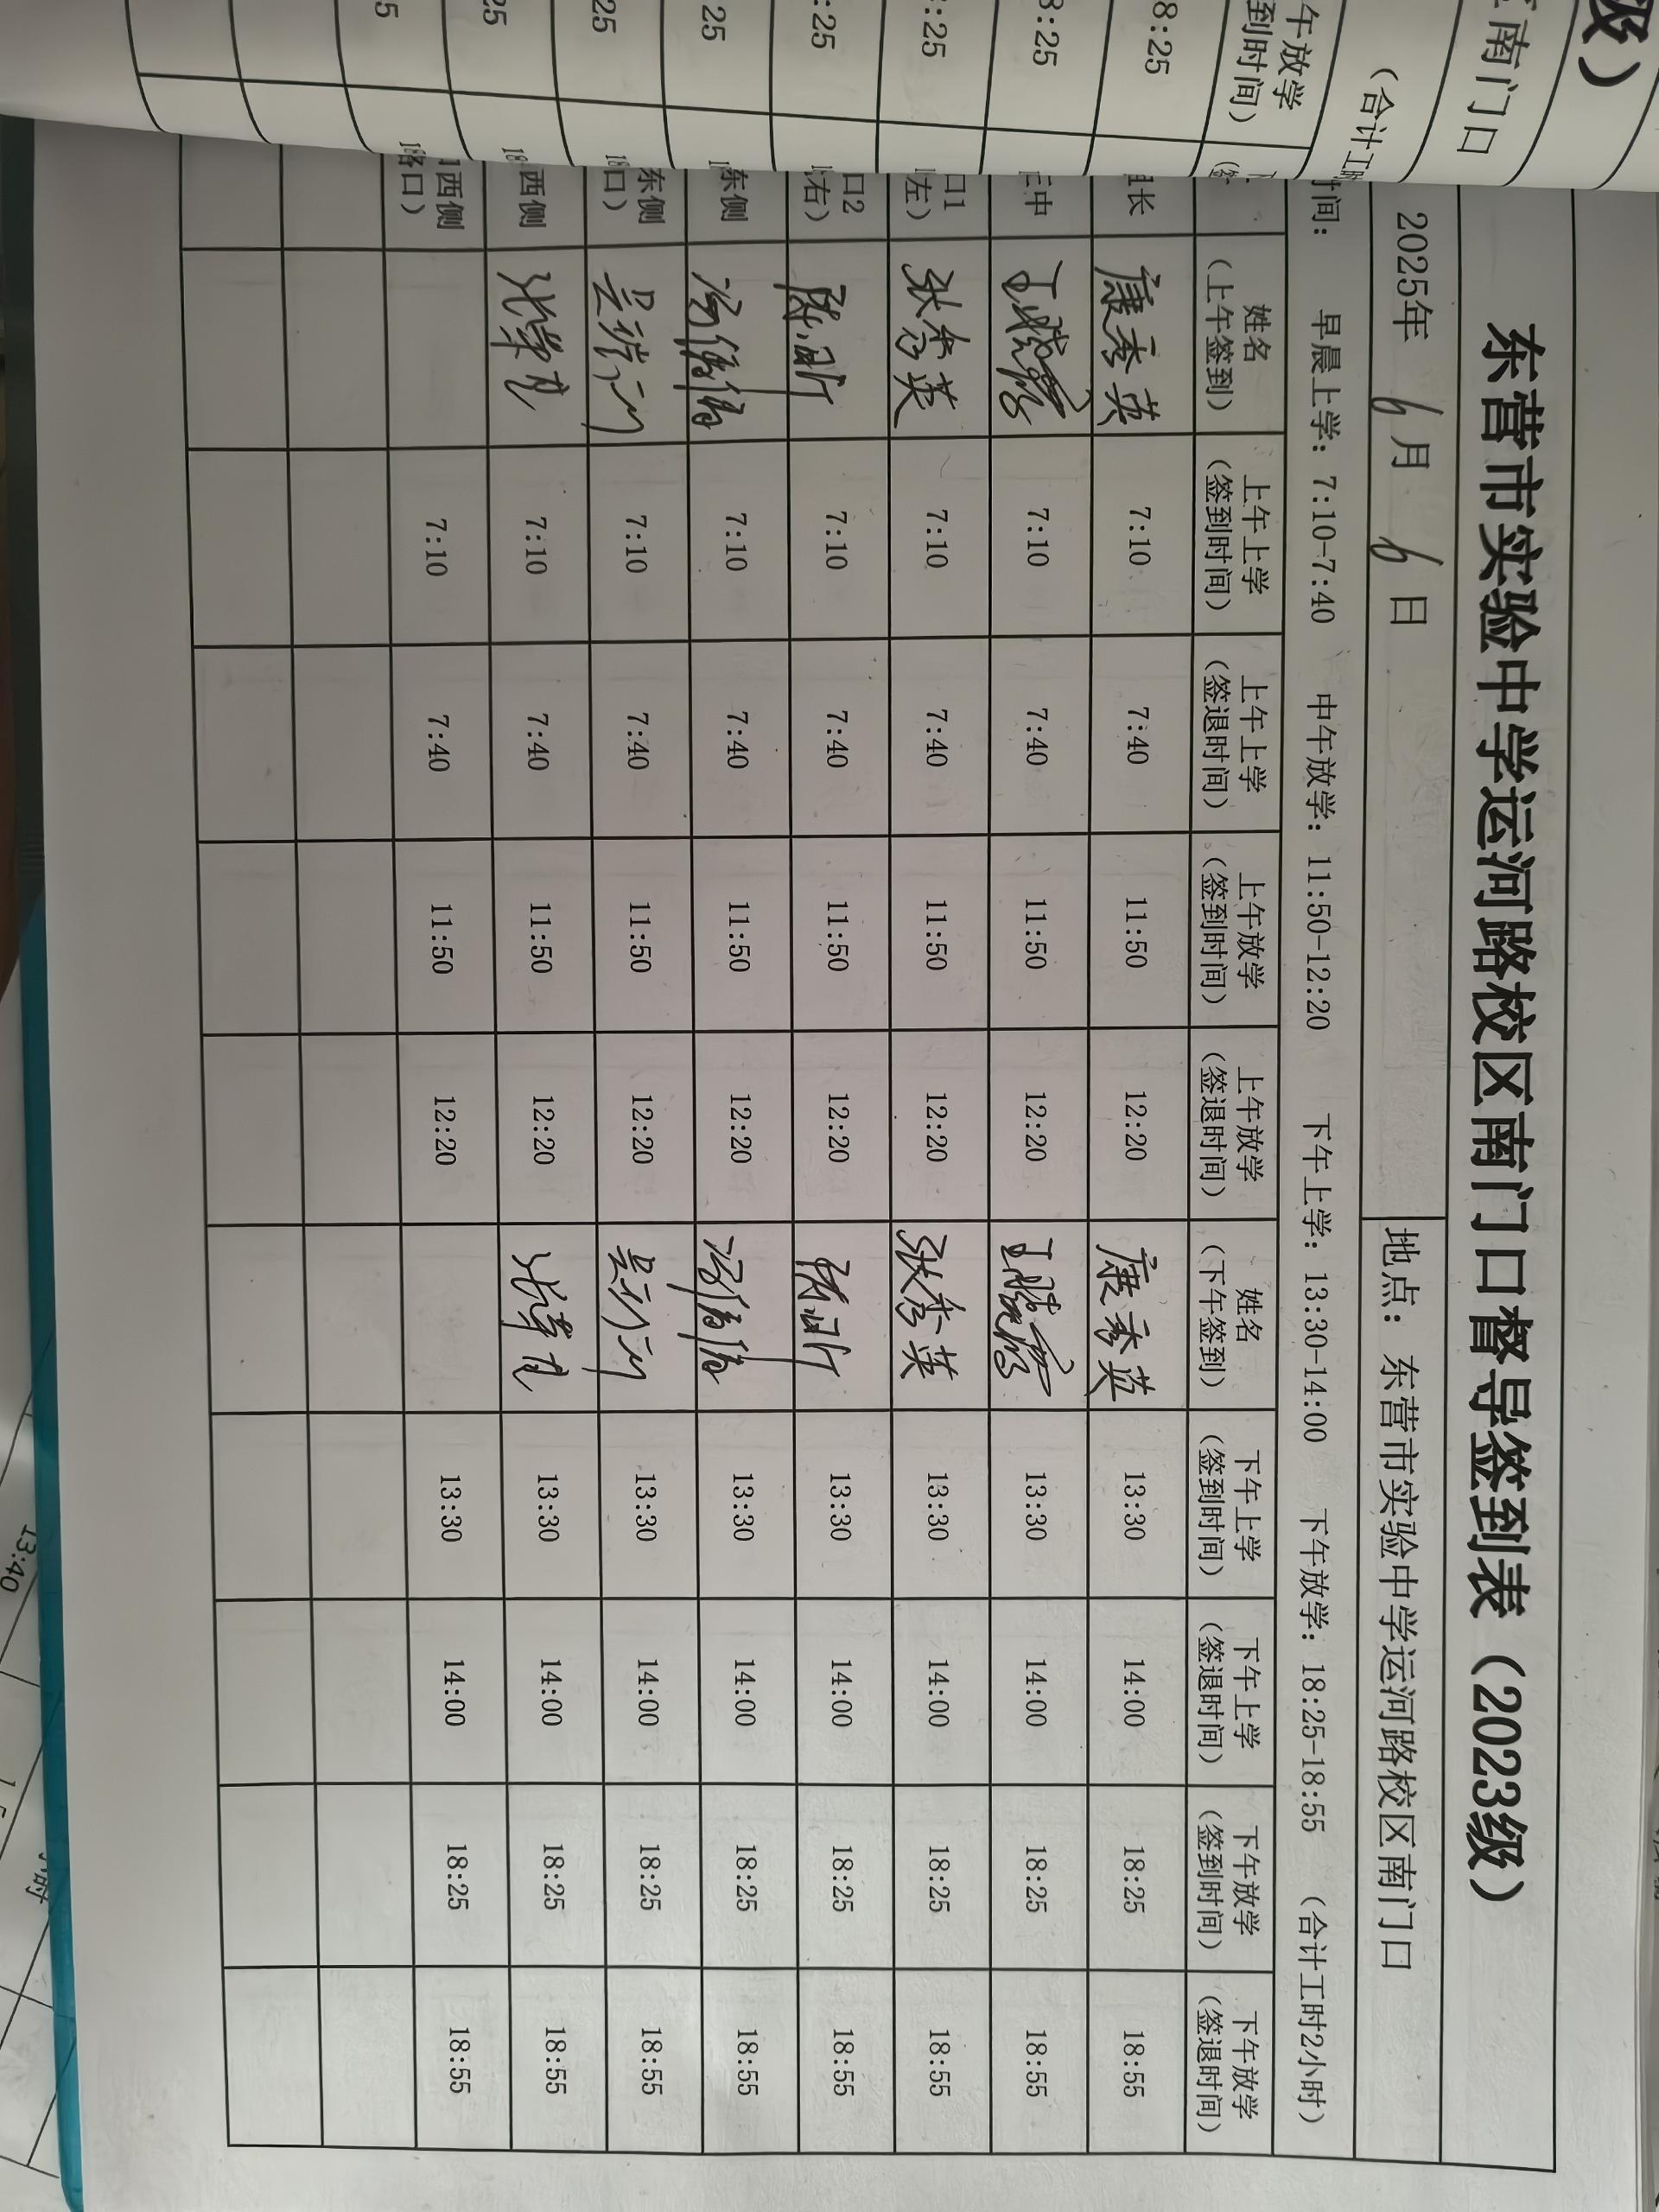 东营市实验中学运河路校区南门口督导签到表（2023级）
2025年 6月 6日 地点：东营市实验中学运河路校区南门口
时间： 早晨上学：7:10-7:40 中午放学：11:50-12:20 下午上学：13:30-14:00 下午放学：18:25-18:55 （合计工时2小时）
姓名（上午签到） 上午上学（签到时间） 上午上学（签退时间） 上午放学（签到时间） 上午放学（签退时间） 姓名（下午签到） 下午上学（签到时间） 下午上学（签退时间） 下午放学（签到时间） 下午放学（签退时间）
组长 康秀英 7:10 7:40 11:50 12:20 康秀英 13:30 14:00 18:25 18:55
正中 7:10 7:40 11:50 12:20 13:30 14:00 18:25 18:55
口1 左） 张秀英 7:10 7:40 11:50 12:20 张秀英 13:30 14:00 18:25 18:55
口2 右） 7:10 7:40 11:50 12:20 13:30 14:00 18:25 18:55
东侧 7:10 7:40 11:50 12:20 13:30 14:00 18:25 18:55
东侧 口） 7:10 7:40 11:50 12:20 13:30 14:00 18:25 18:55
西侧 7:10 7:40 11:50 12:20 13:30 14:00 18:25 18:55
西侧 路口） 7:10 7:40 11:50 12:20 13:30 14:00 18:25 18:55
级）
南门口
（合计工时
午放学
到时间）
8:25
8:25
:25
:25
25
25
25
5
13:40
时